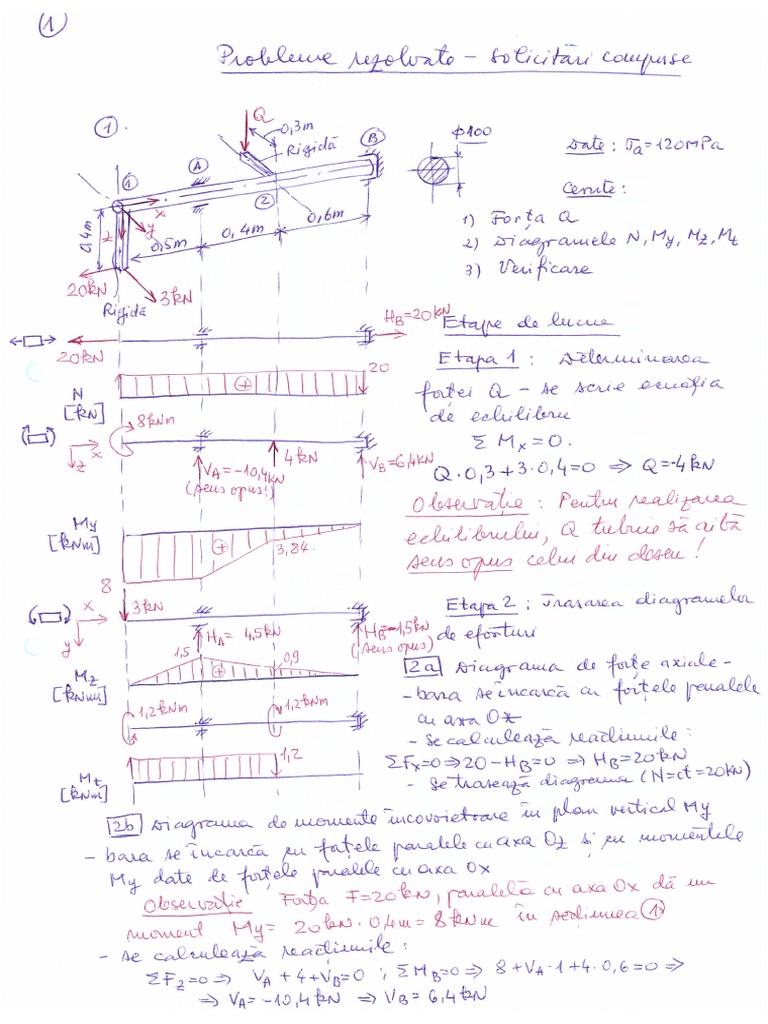 1
Probleme rezolvate – solicitări compuse
1.
Q
0,3m
Rigidă
B
A
1
x
y
z
0,4m
2
0,6m
0,4m
0,5m
20kN
3kN
Rigidă
ϕ100
Date: σa=120MPa
Cerute:
1) Forța Q
2) Diagramele N, My, Mz, Mt
3) Verificare
HB=20kN
20kN
Etape de lucru
Etapa 1: Determinarea
forței Q – se scrie ecuația
de echilibru
Σ Mx=0.
Q·0,3+3·0,4=0 ⇒ Q=-4kN
Observație: Pentru realizarea
echilibrului, Q trebuie să aibă
sens opus celui din desen!
N
[kN]
20
+
8kNm
x
z
VA=-10,4kN
(sens opus!)
4kN
VB=6,4kN
My
[kNm]
8
+
3,84.
Etapa 2: Trasarea diagramelor
de eforturi
3kN
x
y
HA=4,5kN
HB=1,5kN
(sens opus)
Mz
[kNm]
1,5
+
0,9
1,2kNm
1,2kNm
Mt
[kNm]
1,2
2a Diagrama de forțe axiale –
- bara se încarcă cu forțele paralele
cu axa Ox
- se calculează reacțiunile:
ΣFx=0 ⇒ 20-HB=0 ⇒ HB=20kN
- Se trasează diagrama (N=ct=20kN)
2b Diagrama de momente încovoietoare în plan vertical My
- bara se încarcă cu forțele paralele cu axa Oz și cu momentele
My date de forțele paralele cu axa Ox
Observație Forța F=20kN, paralelă cu axa Ox dă un
moment My= 20kN·0,4m= 8kNm în secțiunea 1
- se calculează reacțiunile:
ΣFz=0 ⇒ VA+4+VB=0 ; ΣMB=0 ⇒ 8+VA·1+4·0,6=0 ⇒
⇒ VA=-10,4kN ⇒ VB=6,4kN